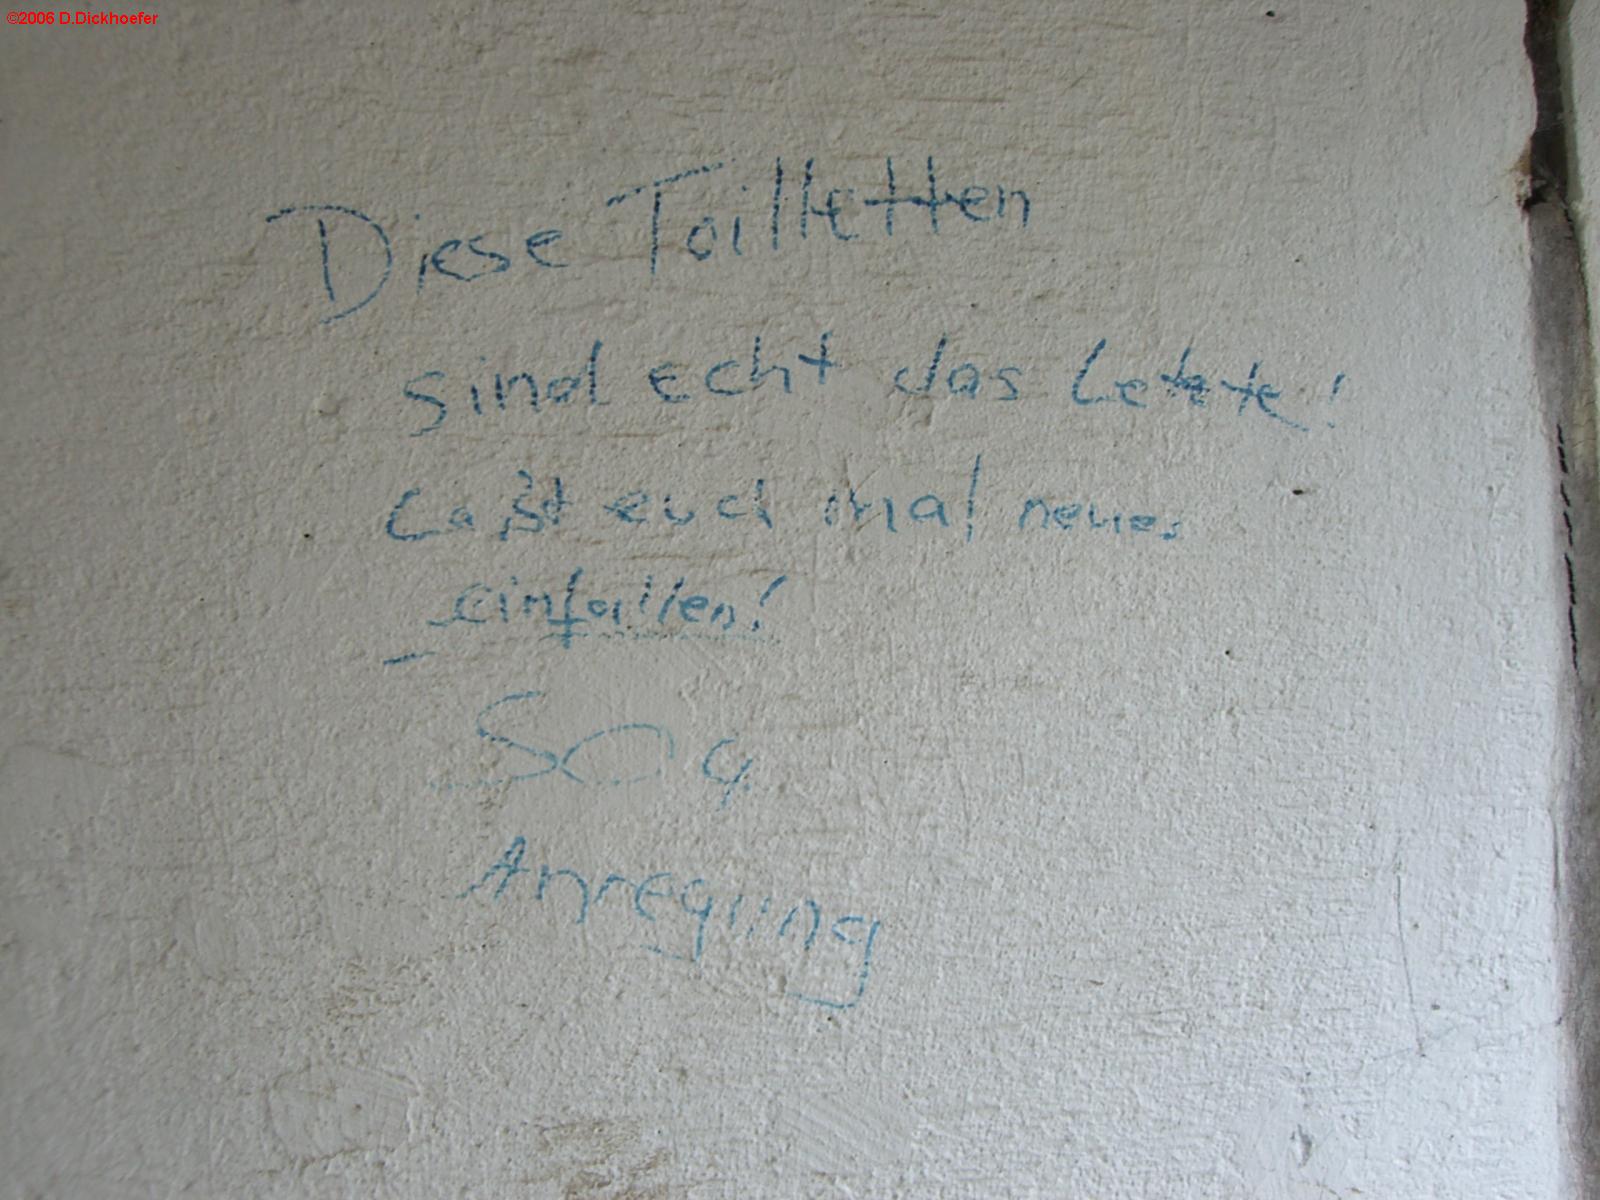 ©2006 D.Dickhoefer
Diese Toilletten
sind echt das Letzte!
Laßt euch mal neues
einfallen!
Anregung